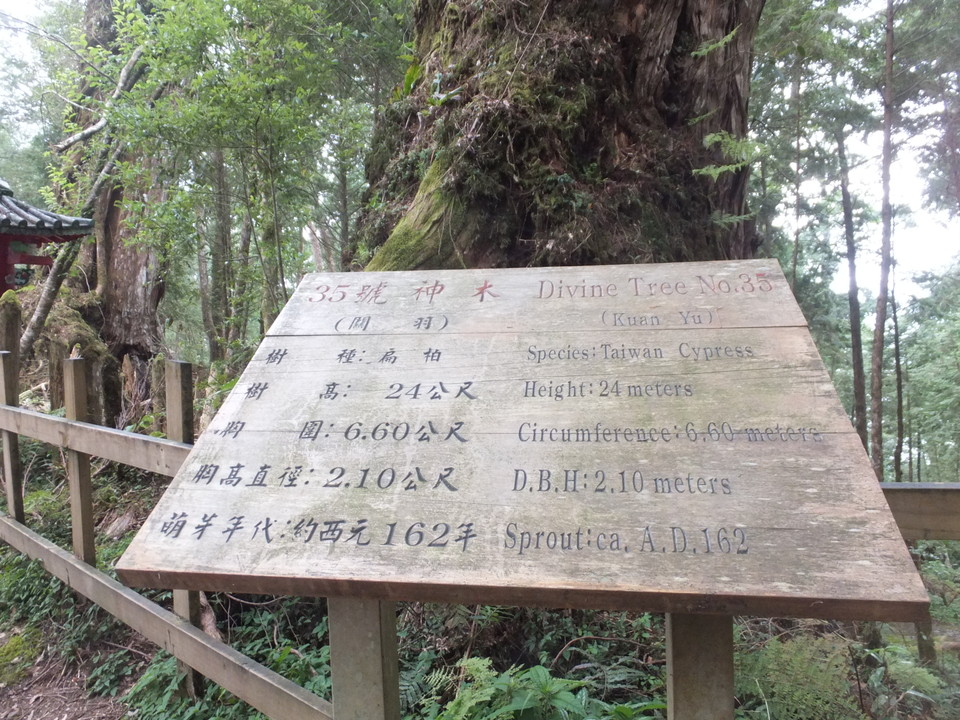 35號 神 木 Divine Tree No.35
(關 羽) (Kuan Yu)
樹 種:扁 柏 Species:Taiwan Cypress
樹 高: 24公尺 Height:24 meters
胸 圍:6.60公尺 Circumference:6.60 meters
胸高直徑:2.10公尺 D.B.H:2.10 meters
萌芽年代:約西元162年 Sprout:ca. A.D.162